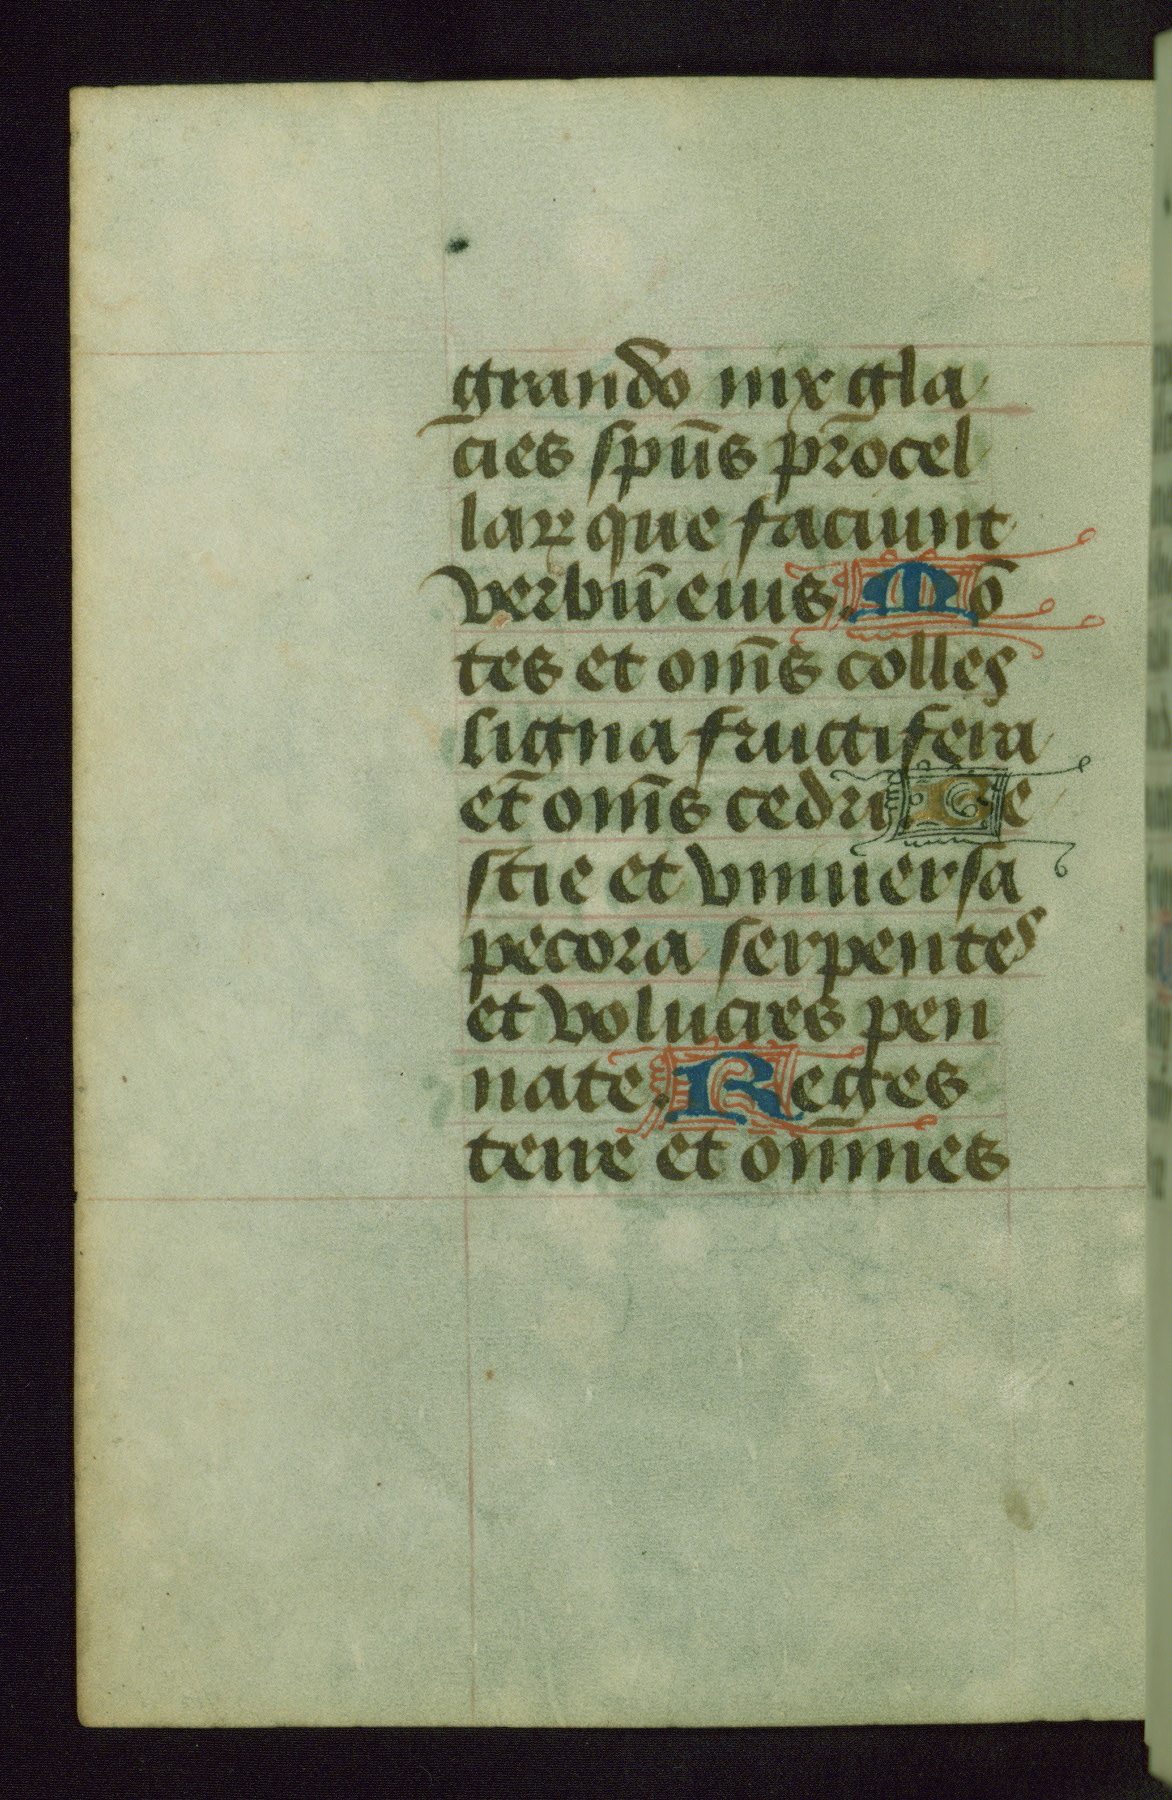 grando nix gla
cies spūs procel
laꝝ que faciunt
verbū eius. Mō
tes et om̄s colles
ligna fructifera
et om̄s cedri. Be
stie et vniuersa
pecora serpentes
et volucres pen
nate. Reges
terre et omnes